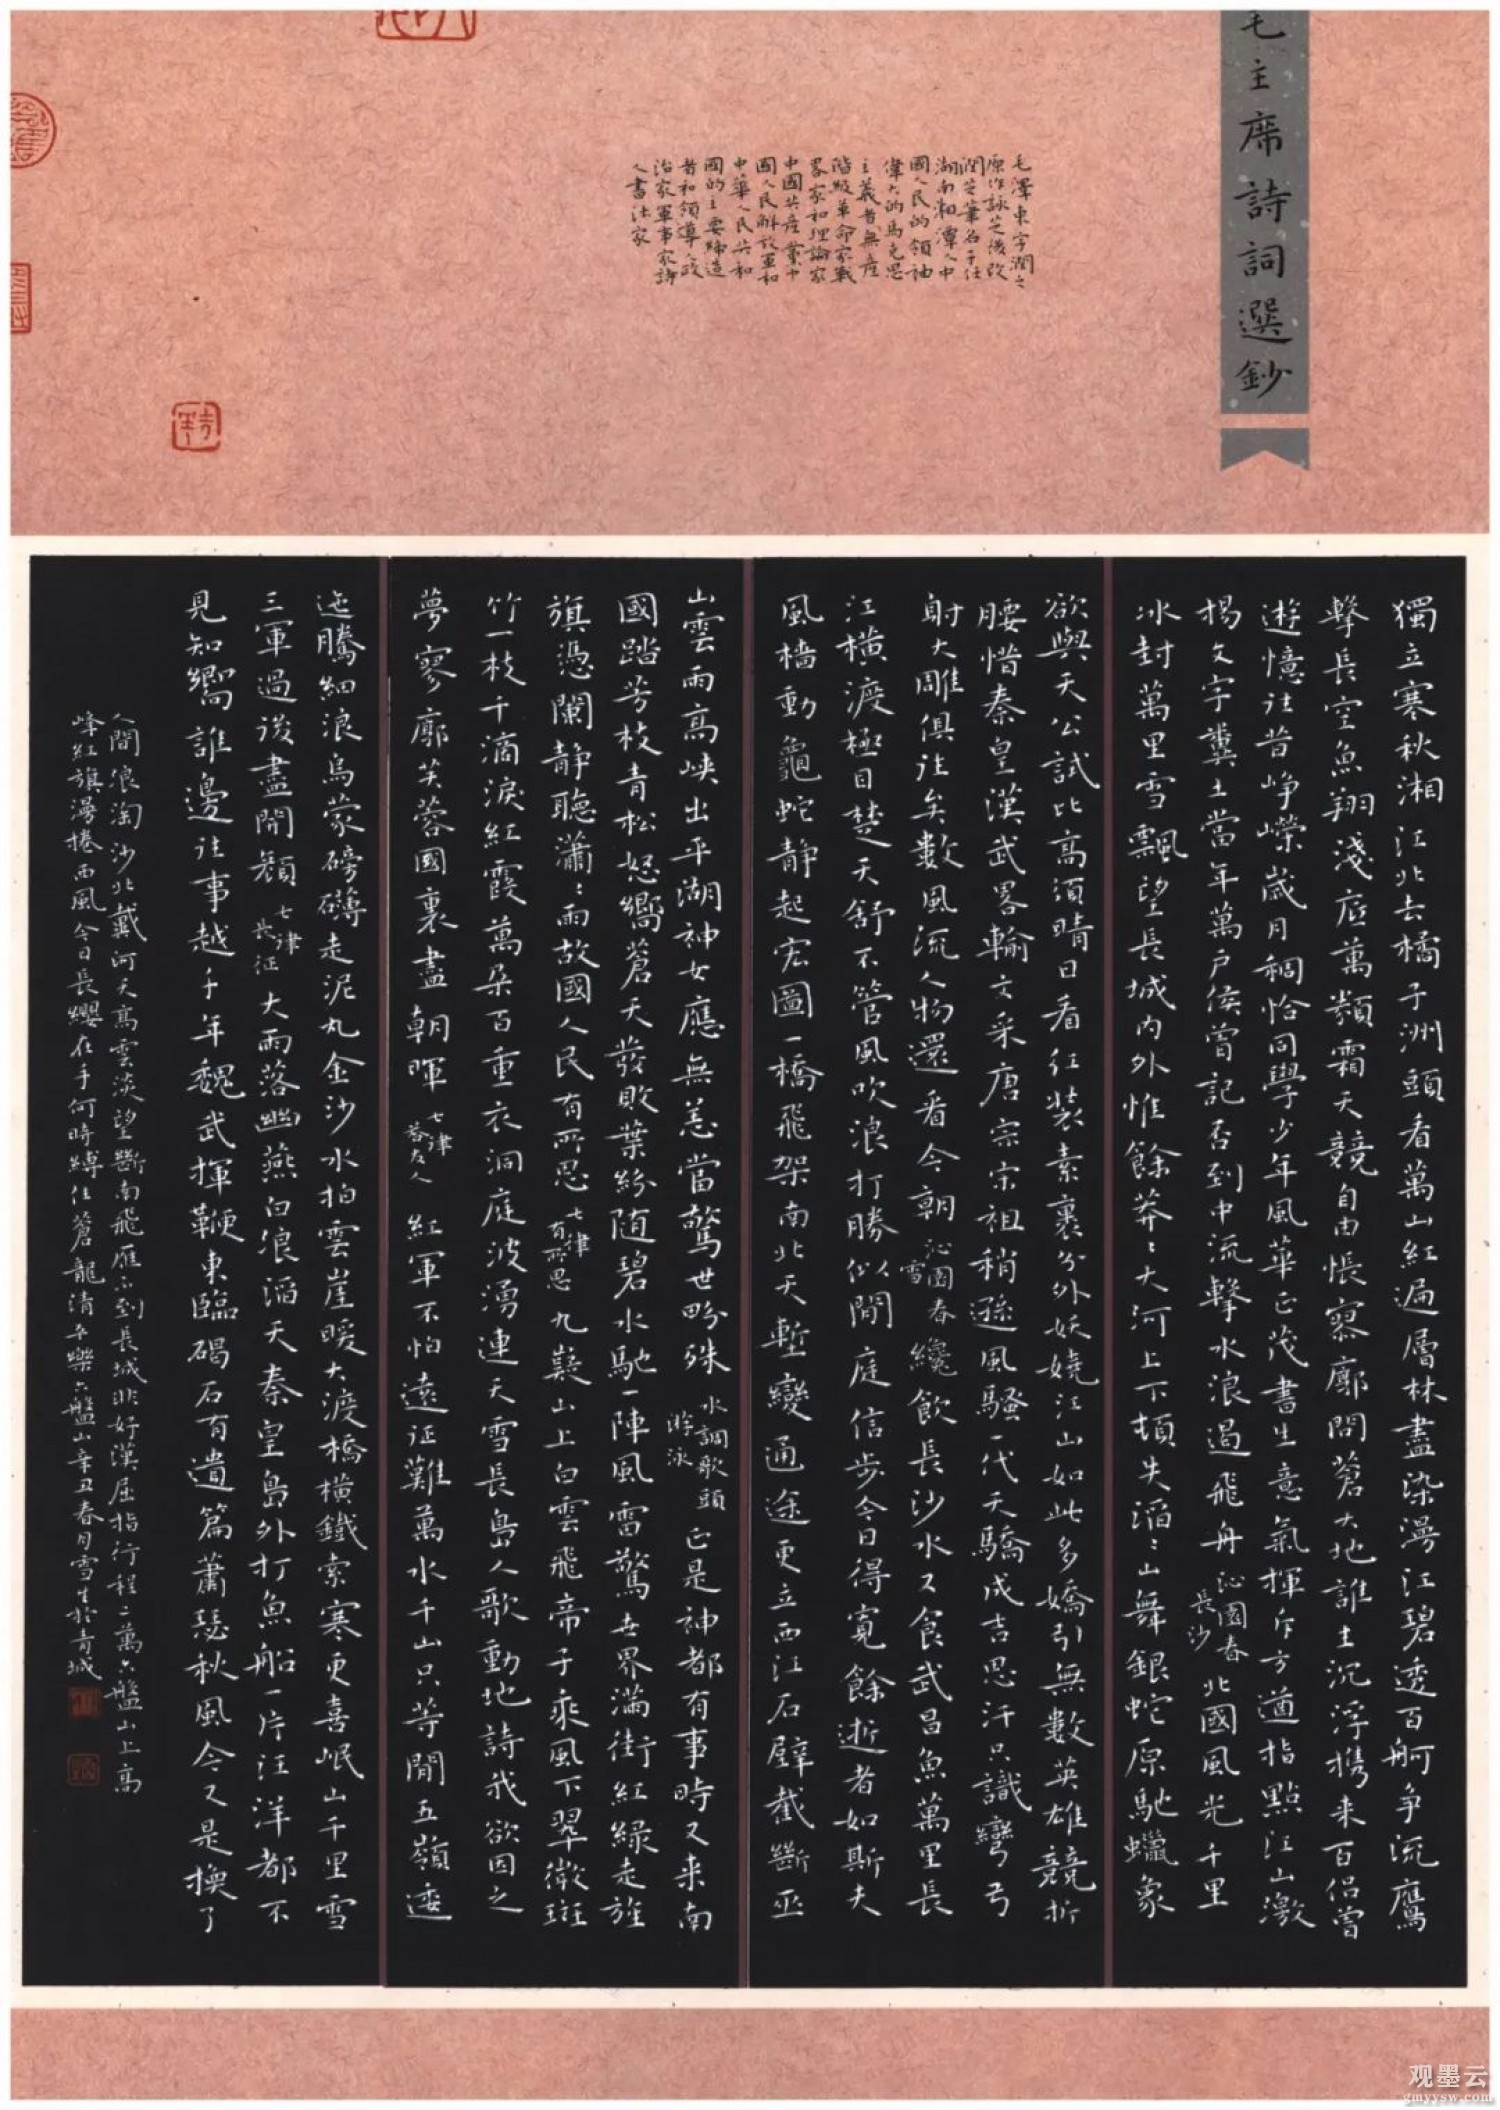 毛主席詩詞選鈔
毛澤東字潤之
原作詠芝後改
潤芝筆名子任
湖南湘潭人中
國人民的領袖
偉大的馬克思
主義者無産
階級革命家戰
畧家和理論家
中國共産黨中
國人民解放軍和
中華人民共和
國的主要締造
者和領導人政
治家軍事家詩
人書法家
獨立寒秋湘江北去橘子洲頭看萬山紅遍層林盡染漫江碧透百舸争流鷹
擊長空魚翔淺底萬類霜天競自由悵寥廓問蒼大地誰主沉浮携来百侣曾
遊憶往昔崢嶸歲月稠恰同學少年風華正茂書生意氣揮斥方遒指點江山激
揚文字糞土當年萬户侯曾記否到中流擊水浪遏飛舟 沁園春長沙 北國風光千里
冰封萬里雪飄望長城内外惟餘莽〻大河上下頓失滔〻山舞銀蛇原馳蠟象
欲與天公試比高須晴日看红装素裹分外妖嬈江山如此多嬌引無數英雄競折
腰惜秦皇漢武畧輸文采唐宗宋祖稍遜風騷一代天驕成吉思汗只識彎弓
射大雕俱往矣數風流人物還看今朝 沁園春雪 纔飲長沙水又食武昌魚萬里長
江横渡極目楚天舒不管風吹浪打勝似閒庭信步今日得寬餘逝者如斯夫
風檣動龜蛇静起宏圖一橋飛架南北天塹變通途更立西江石壁截斷巫
山雲雨高峽出平湖神女應無恙當驚世畍殊 水調歌頭游泳 正是神都有事時又来南
國踏芳枝青松怒嚮蒼天發敗葉紛随碧水馳一陣風雷驚世界滿街紅緑走旌
旗憑闌静聽瀟〻雨故國人民有所思 七律有所思 九嶷山上白雲飛帝子乘風下翠微斑
竹一枝千滴淚紅霞萬朵百重衣洞庭波湧連天雪長島人歌動地詩我欲因之
夢寥廓芙蓉國裏盡朝暉 七律答友人 紅軍不怕遠征難萬水千山只等閒五嶺逶
迤騰細浪烏蒙磅礴走泥丸金沙水拍雲崖暖大渡橋横鐵索寒更喜岷山千里雪
三軍過後盡開顔 七律長征 大雨落幽燕白浪滔天秦皇島外打魚船一片汪洋都不
見知嚮誰邊往事越千年魏武揮鞭東臨碣石有遺篇蕭瑟秋風今又是換了
人間浪淘沙北戴河天高雲淡望斷南飛雁不到長城非好漢屈指行程二萬六盤山上高
峰紅旗漫捲西風今日長纓在手何時縛住蒼龍清平樂六盤山辛丑春月雪生於青城
观墨云
gmyysw.com